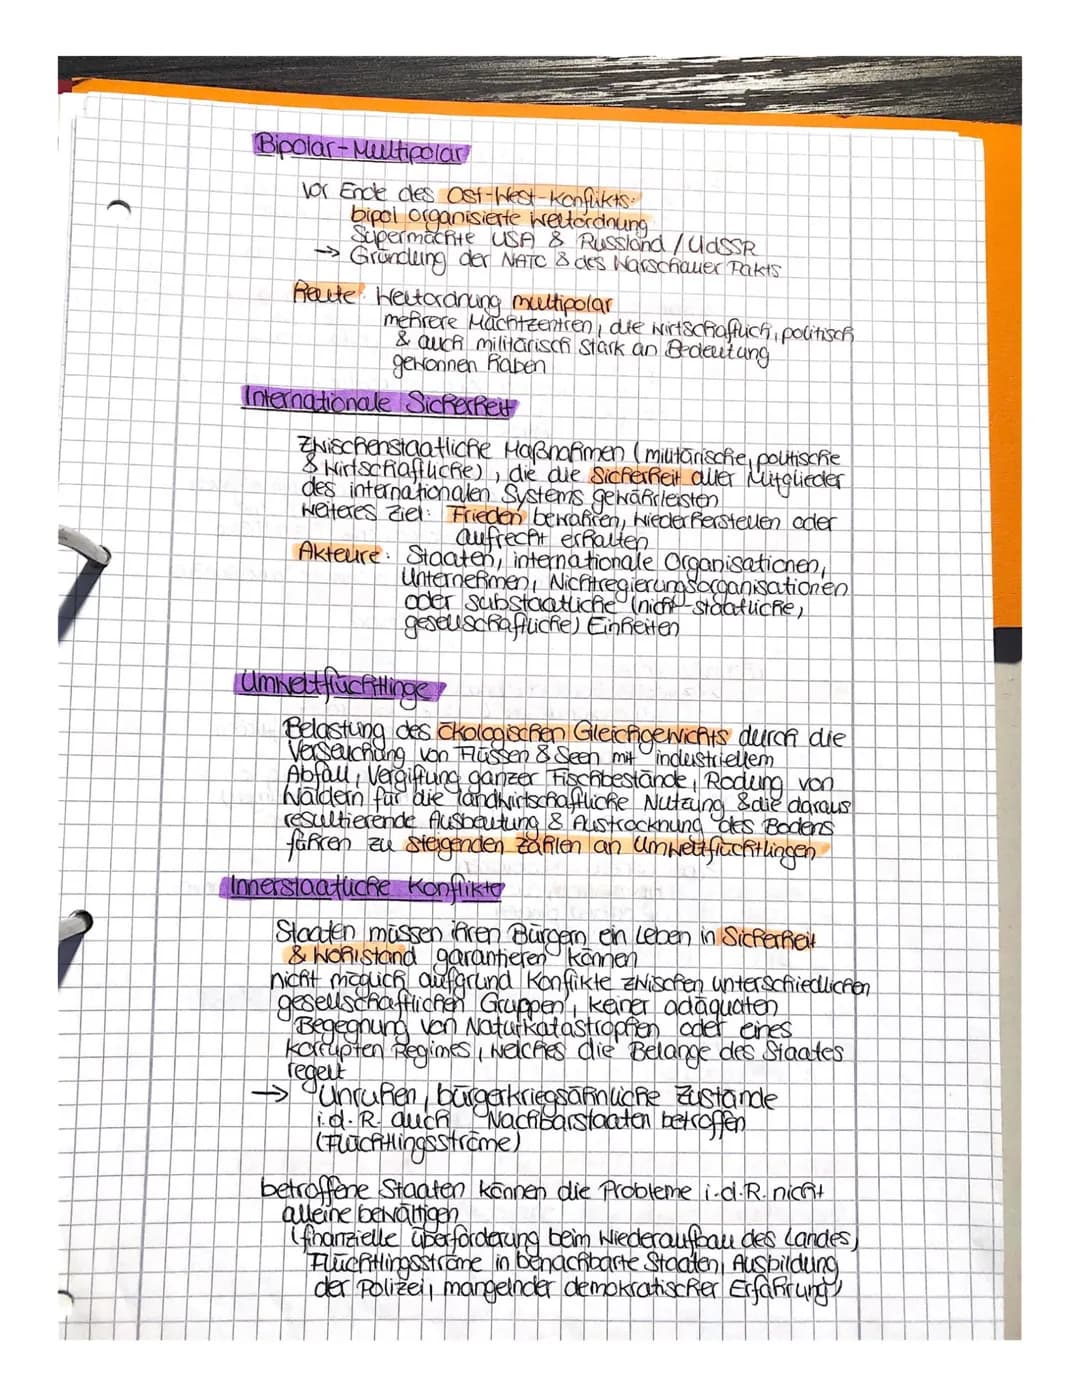 Bipolar-Multipolar
Vor Ende des Ost-West-Konflikts:
bipol organisierte Weltordnung
Supermächte USA & Russland / UdSSR
→ Gründung der NATO & des Warschauer Pakts
Heute: Weltordnung multipolar
mehrere Machtzentren, die wirtschaftlich, politisch
& auch militärisch stark an Bedeutung
gewonnen haben
Internationale Sicherheit
Zwischenstaatliche Maßnahmen (militärische, politische
& wirtschaftliche), die die Sicherheit aller Mitglieder
des internationalen Systems gewährleisten
Weiteres Ziel: Frieden bewahren, wiederherstellen oder
aufrecht erhalten
Akteure: Staaten, internationale Organisationen,
Unternehmen, Nichtregierungsorganisationen
oder substaatliche (nicht-staatliche,
gesellschaftliche) Einheiten
Umweltflüchtlinge
Belastung des ökologischen Gleichgewichts durch die
Verseuchung von Flüssen & Seen mit industriellem
Abfall, Vergiftung ganzer Fischbestände, Rodung von
Wäldern für die landwirtschaftliche Nutzung & die daraus
resultierende Ausbeutung & Austrocknung des Bodens
führen zu steigenden Zahlen an Umweltflüchtlingen
Innerstaatliche Konflikte
Staaten müssen ihren Bürgern ein Leben in Sicherheit
& Wohlstand garantieren können
nicht möglich aufgrund Konflikte zwischen unterschiedlichen
gesellschaftlichen Gruppen, keiner adäquaten
Begegnung von Naturkatastrophen oder eines
korrupten Regimes, welches die Belange des Staates
regelt
→ Unruhen, bürgerkriegsähnliche Zustände
i.d.R. auch Nachbarstaaten betroffen
(Flüchtlingsströme)
betroffene Staaten können die Probleme i.d.R. nicht
alleine bewältigen
(finanzielle Überforderung beim Wiederaufbau des Landes,
Flüchtlingsströme in benachbarte Staaten, Ausbildung
der Polizei, mangelnder demokratischer Erfahrung)